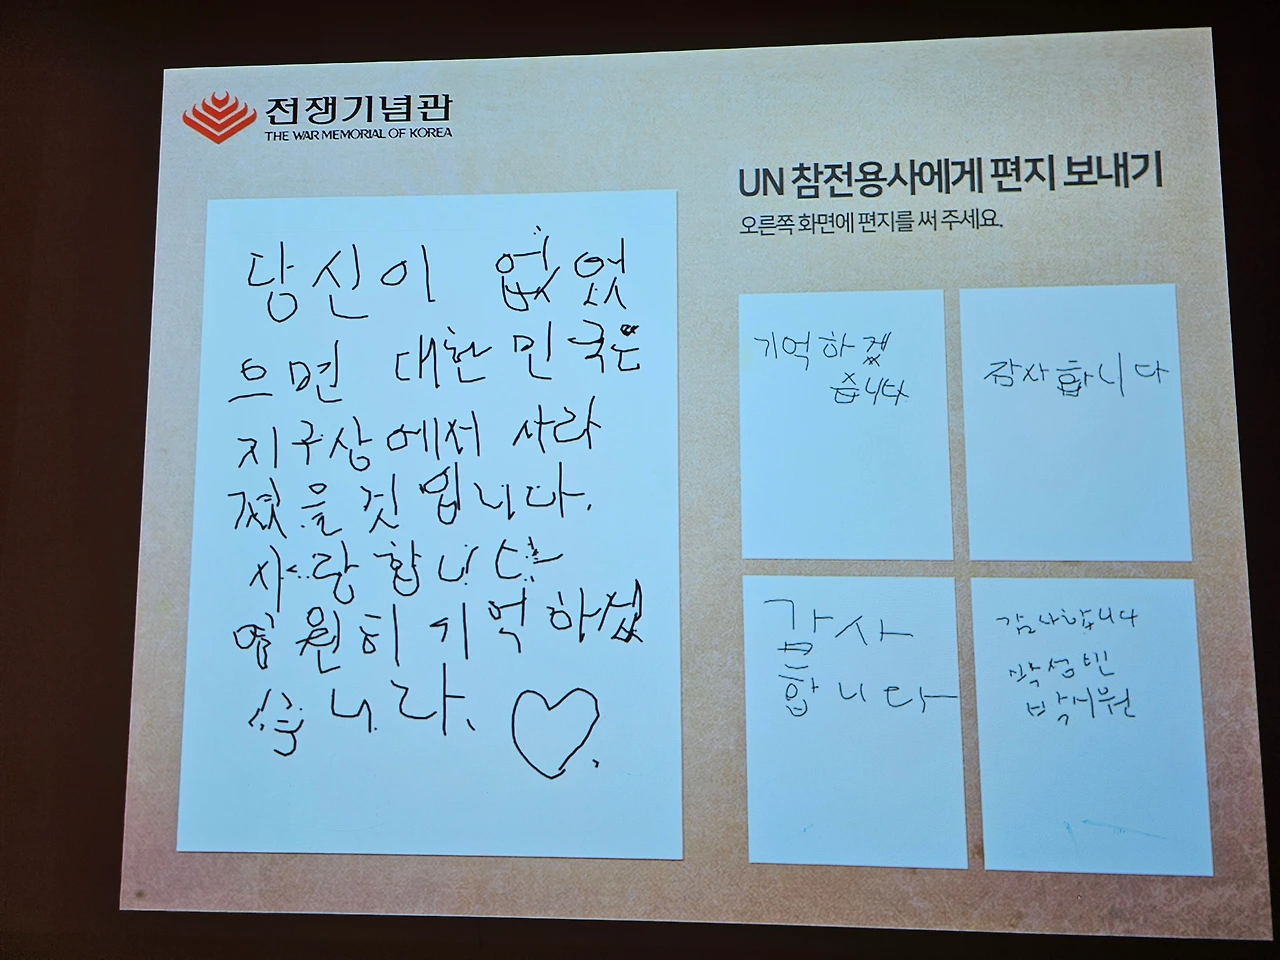 전쟁기념관
THE WAR MEMORIAL OF KOREA
UN 참전용사에게 편지 보내기
오른쪽 화면에 편지를 써 주세요.
당신이 없었
으면 대한민국은
지구상에서 사라
졌을 것입니다.
사랑합니다
영원히 기억하겠
습니다.
기억하겠
습니다
감사합니다
감사
합니다
감사합니다
박성빈
박서원